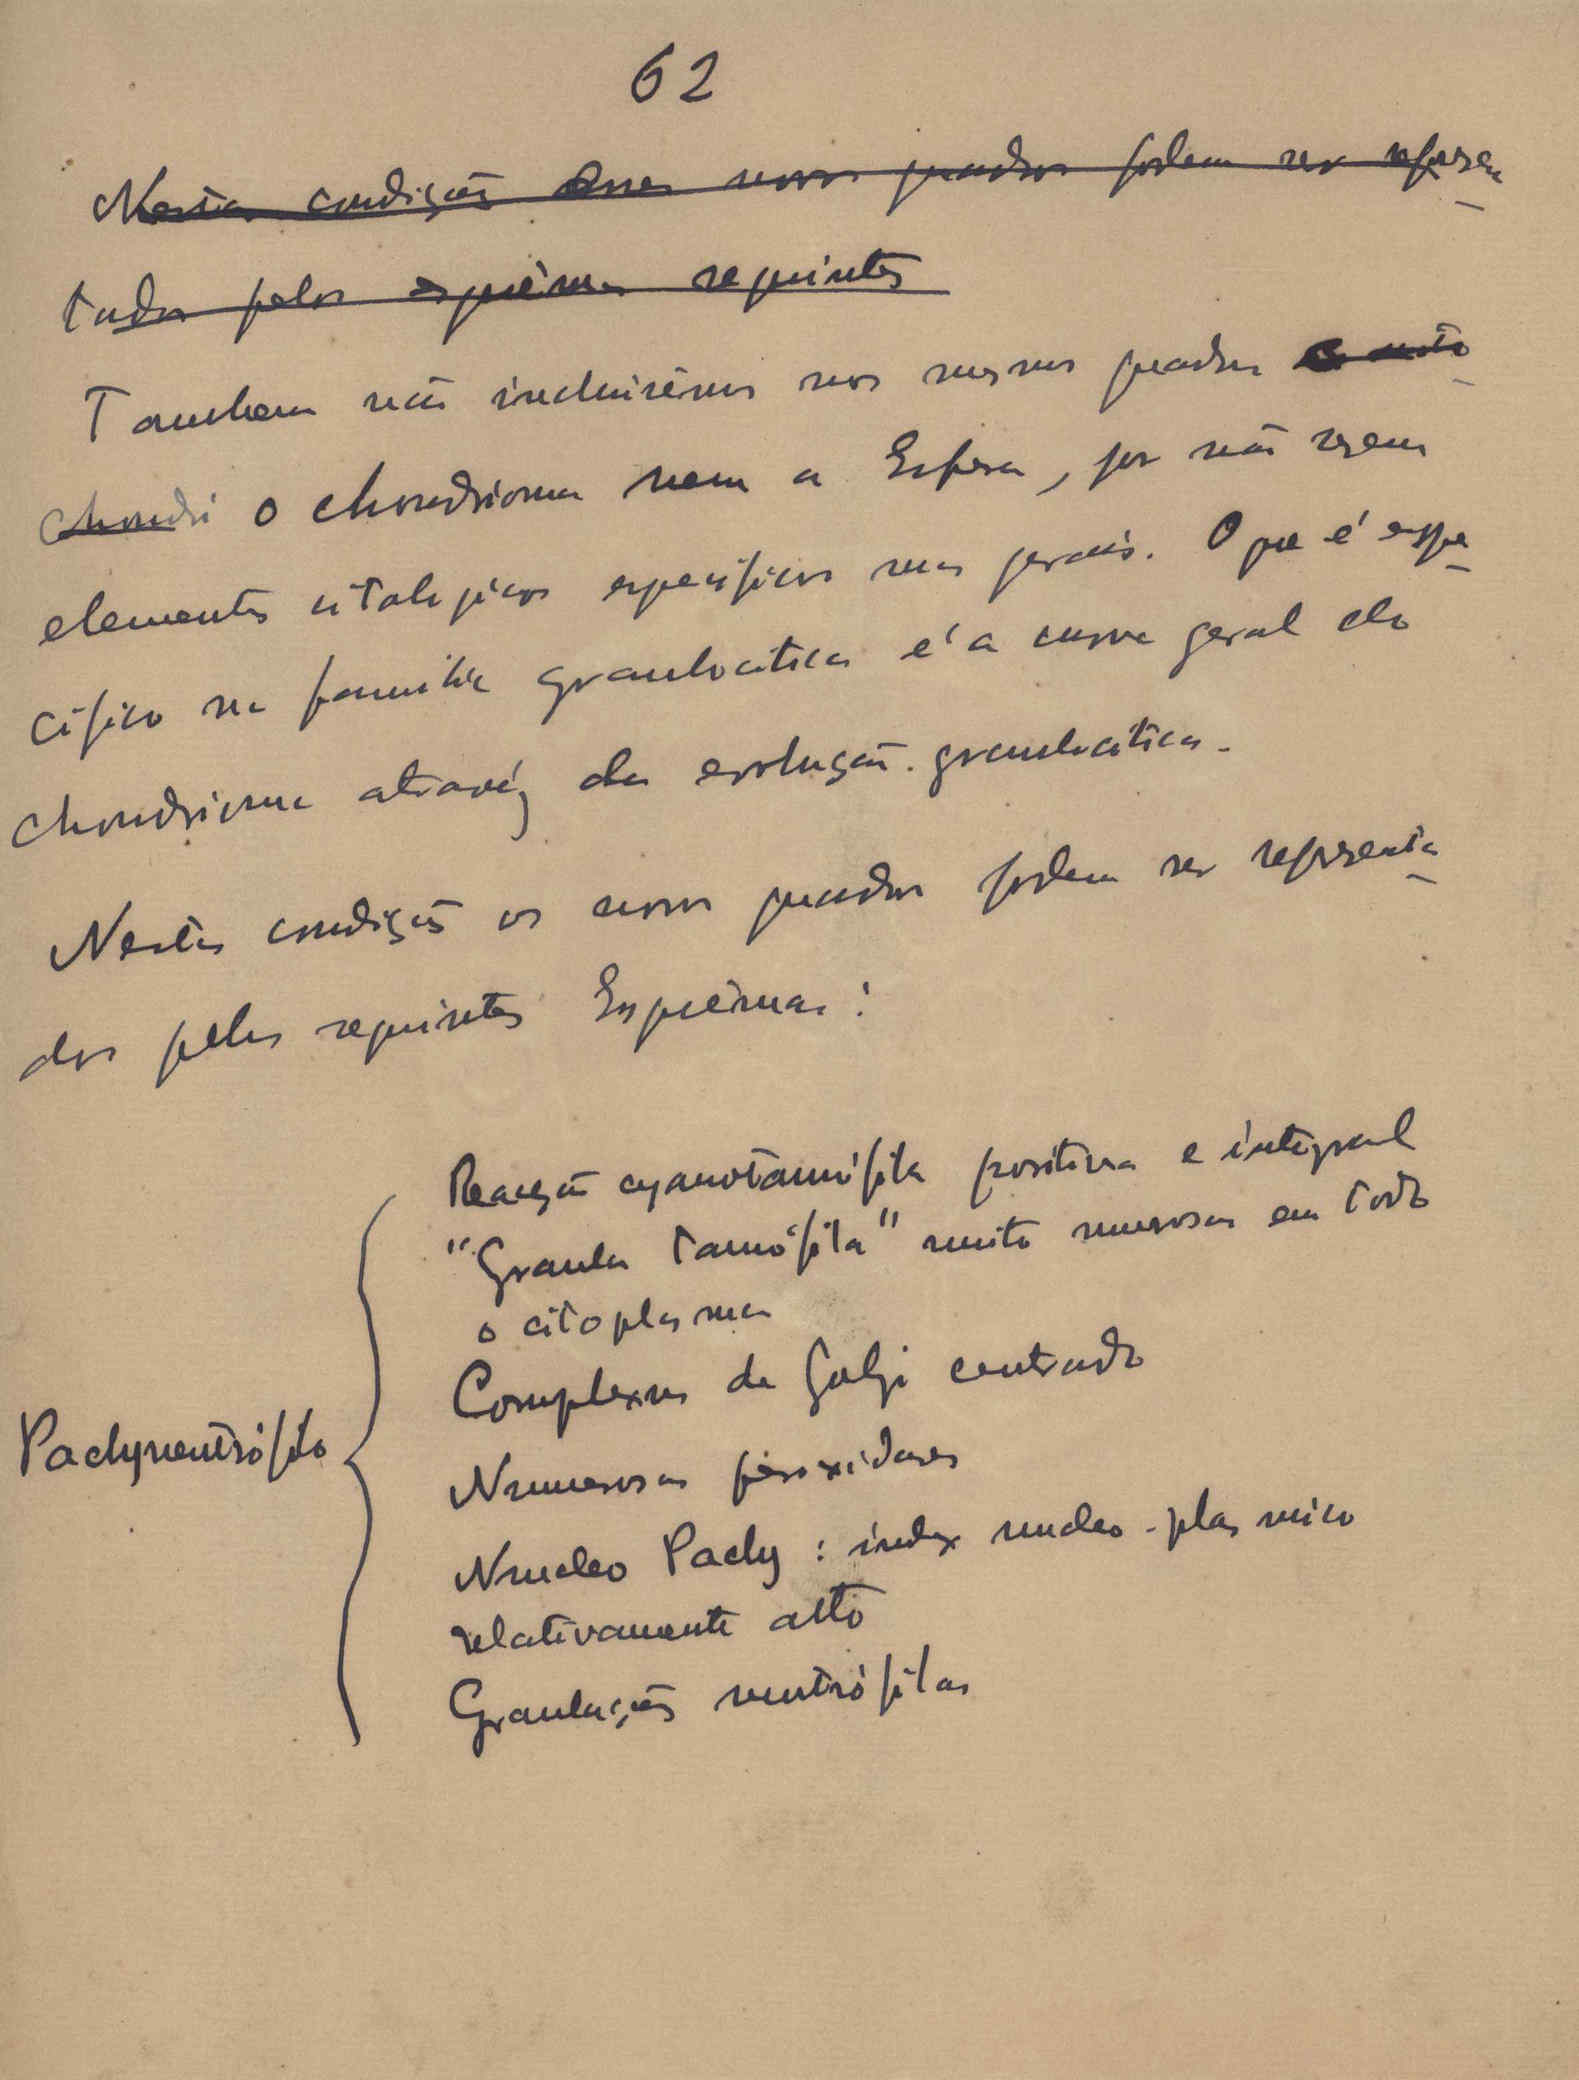 62
Nestas condições esses novos quadros podem ser represen-
tados pelos esquêmas seguintes
Tambem não incluirêmos nos mesmos quadros
Chondri o chondrioma nem a Esfera, por não serem
elementos citologicos especificos mas gerais. O que é espe-
cifico na familia granulocitica é a curva geral do
chondrioma atravéz da evolução granulocitica.
Nestas condições os novos quadros podem ser representa-
dos pelos seguintes Esquêmas:
Reacção cyanotanófila positiva e integral
"Granula tanófila" muito numerosas em todo
o citoplasma
Complexus de Golgi centrado
Pachyneutrófilo
Numerosas peroxidases
Nucleo Pachy : index nucleo-plasmico
relativamente alto
Granulações neutrófilas